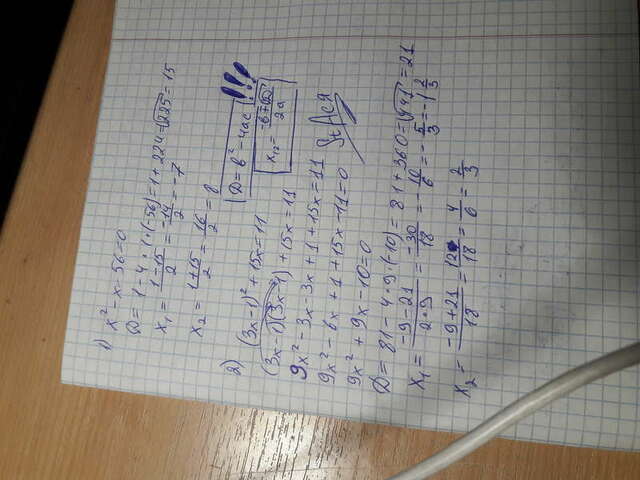 1) x² - x - 56 = 0
D = 1 - 4 · 1 · (-56) = 1 + 224 = √225 = 15
x₁ = (1-15)/2 = -14/2 = -7
x₂ = (1+15)/2 = 16/2 = 8
D = b² - 4ac !!!
2) (3x-1)² + 15x = 11
x₁,₂ = (-b±√D)/2a
(3x-1)(3x-1) + 15x = 11
9x² - 3x - 3x + 1 + 15x = 11
St Ася
9x² - 6x + 1 + 15x - 11 = 0
9x² + 9x - 10 = 0
D = 81 - 4 · 9 · (-10) = 81 + 360 = √441 = 21
x₁ = (-9-21)/(2·9) = -30/18 = -10/6 = -5/3 = -1 2/3
x₂ = (-9+21)/18 = 12/18 = 4/6 = 2/3